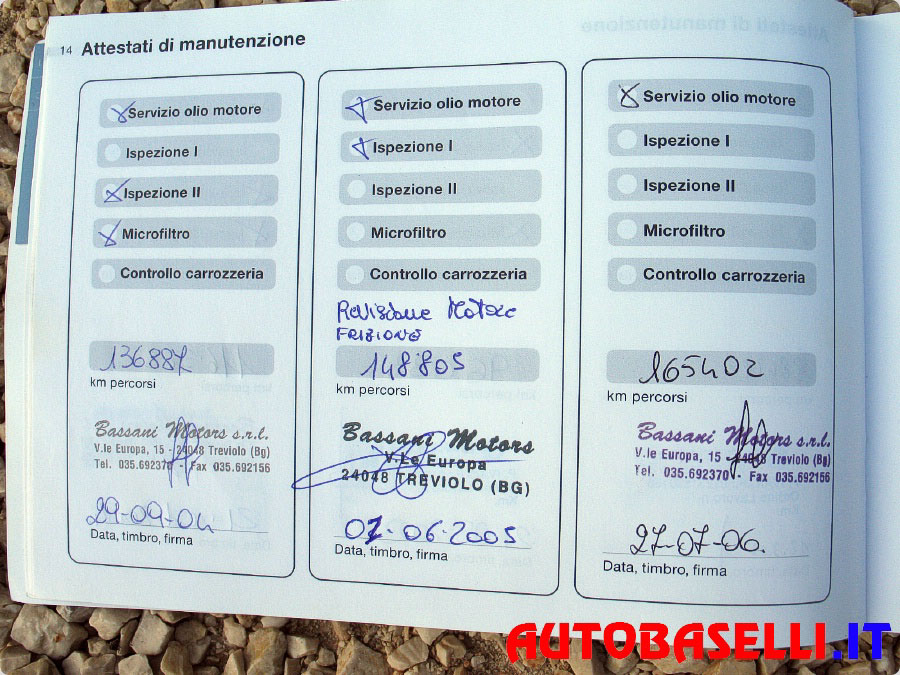 14 Attestati di manutenzione
Servizio olio motore
Ispezione I
Ispezione II
Microfiltro
Controllo carrozzeria
136887
km percorsi
Bassani Motors s.r.l.
V.le Europa, 15 - 24048 Treviolo (Bg)
Tel. 035.692370 - Fax 035.692156
29-09-04
Data, timbro, firma
Servizio olio motore
Ispezione I
Ispezione II
Microfiltro
Controllo carrozzeria
Revisione Motore
FRIZIONE
148805
km percorsi
Bassani Motors
V.Le Europa
24048 TREVIOLO (BG)
07-06-2005
Data, timbro, firma
Servizio olio motore
Ispezione I
Ispezione II
Microfiltro
Controllo carrozzeria
165402
km percorsi
Bassani Motors s.r.l.
V.le Europa, 15 - 24048 Treviolo (Bg)
Tel. 035.692370 - Fax 035.692156
27-07-06.
Data, timbro, firma
AUTOBASELLI.IT